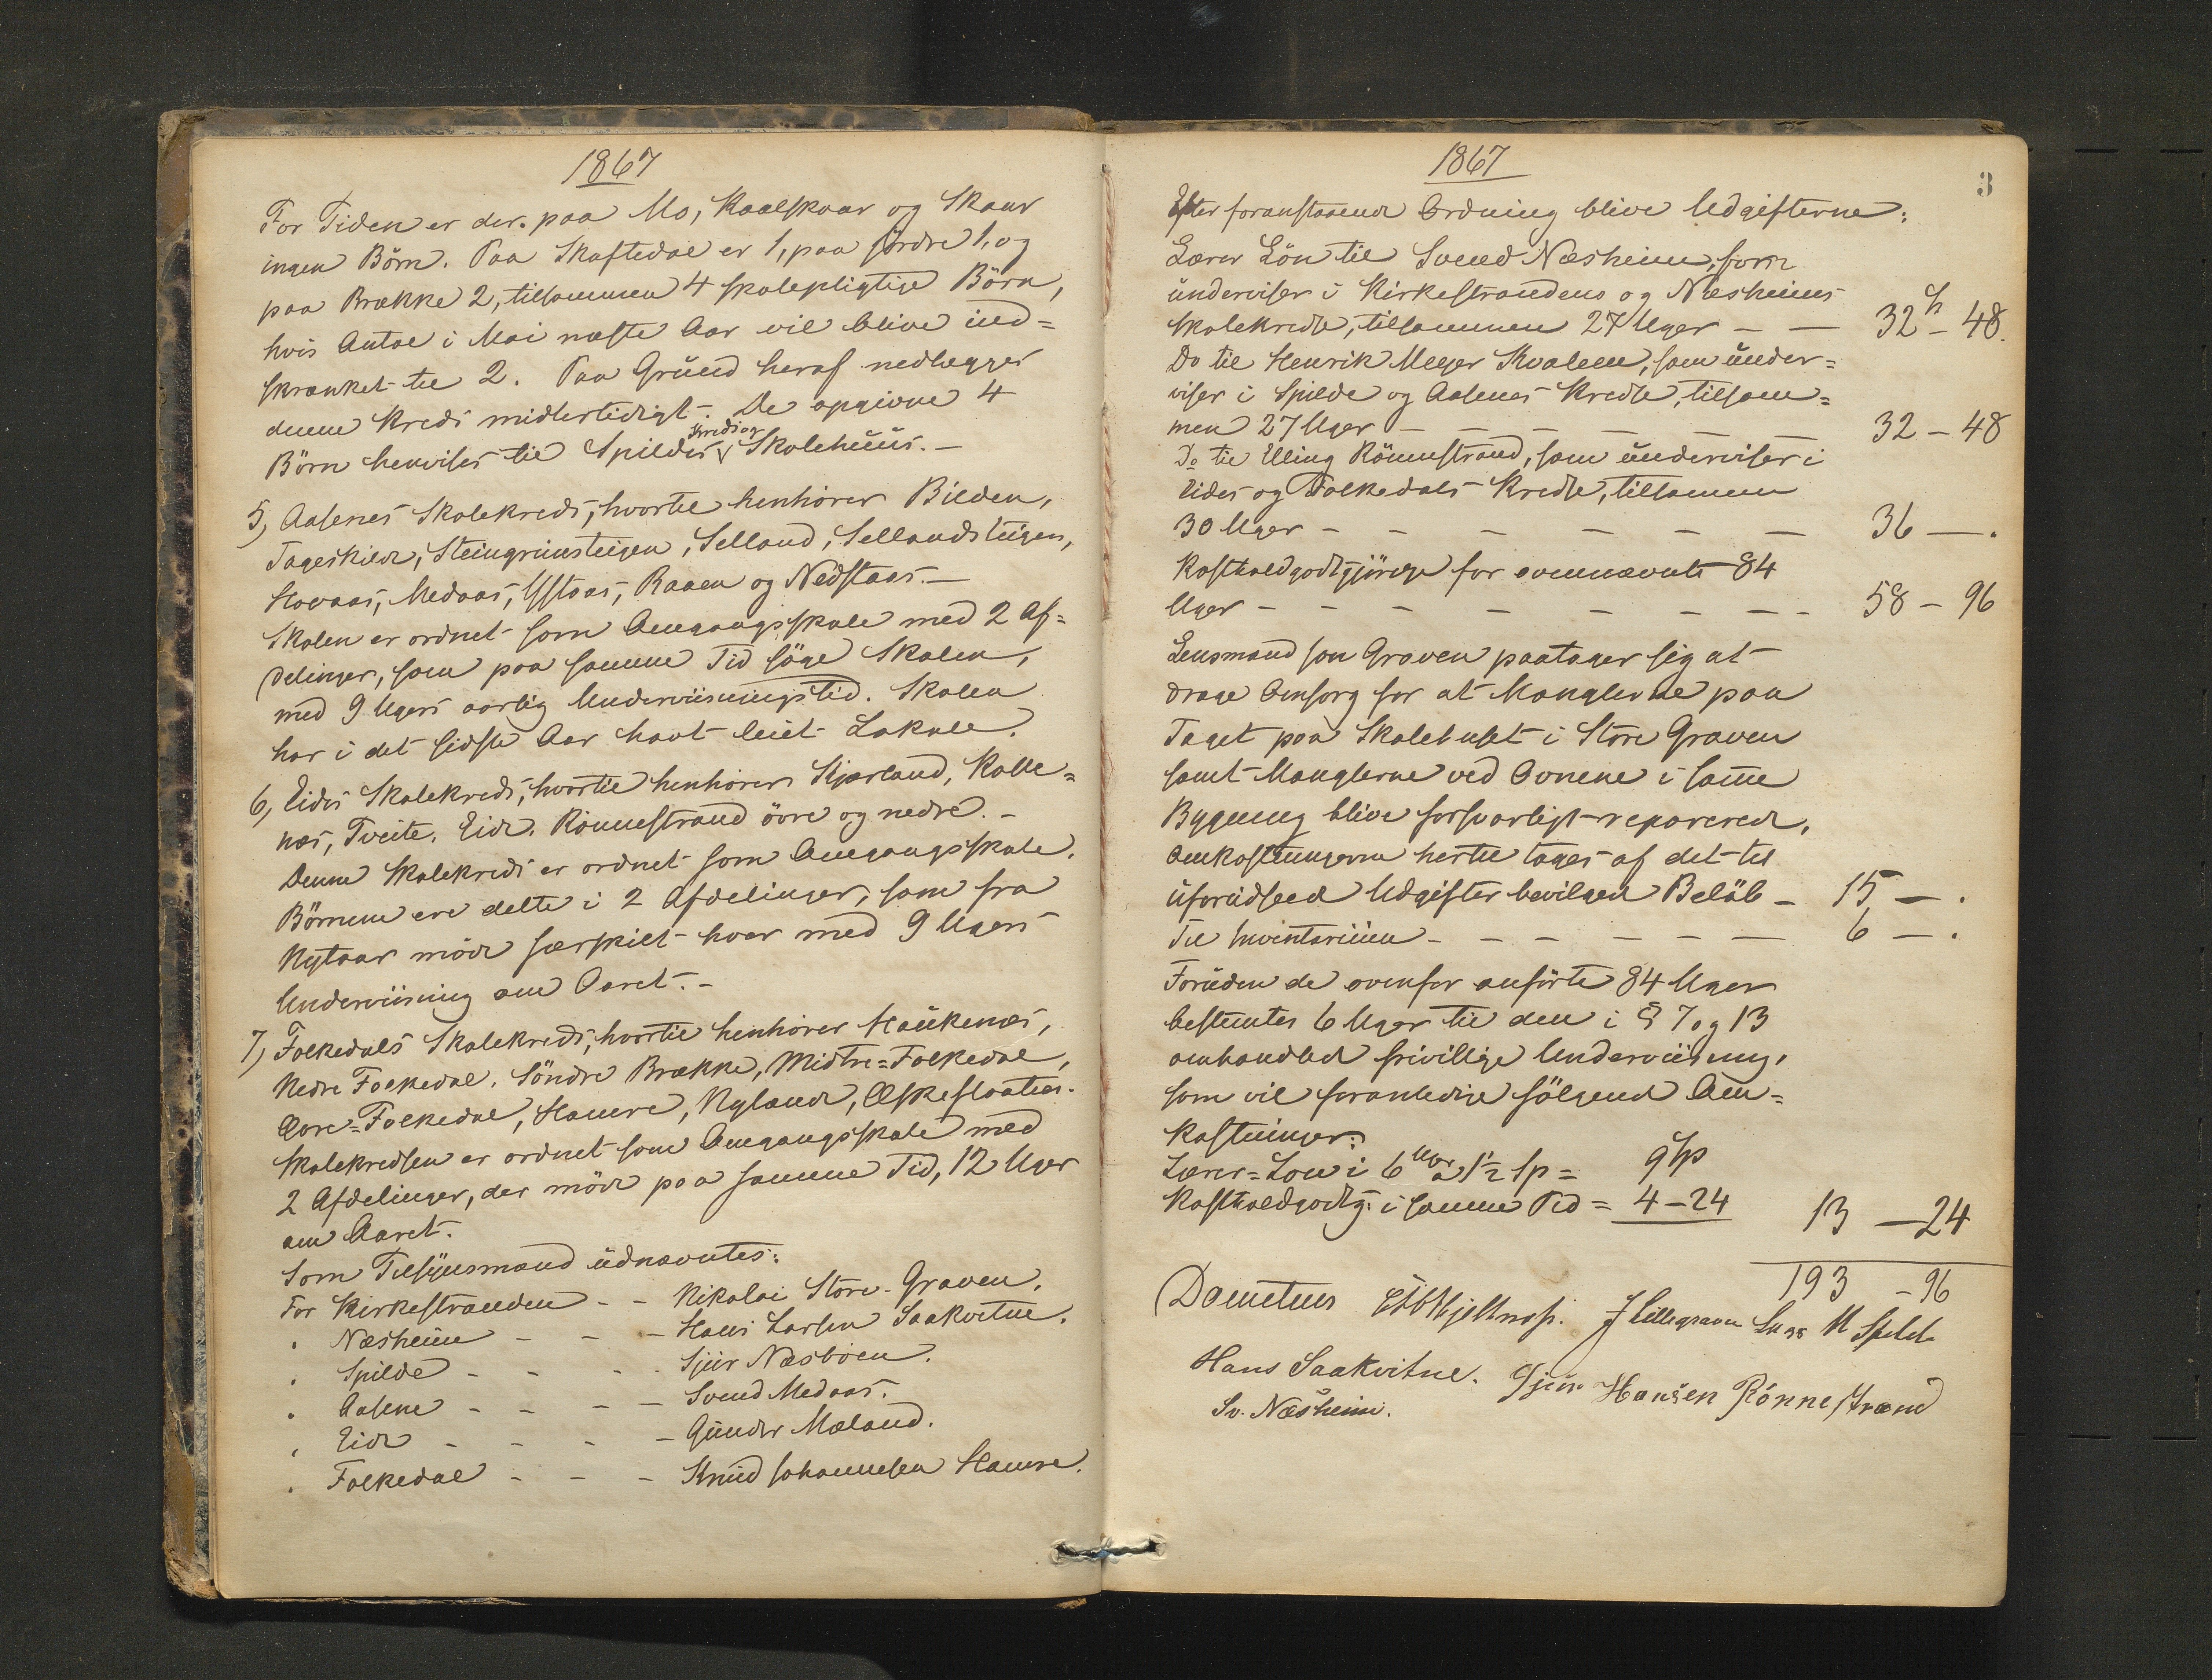 1867
For Tiden er der paa Mo, Kaalskaar og Skaar
ingen Börn. Paa Skaftedal er 1, paa Jördre 1, og
paa Brække 2, tilsammen 4 skolepligtige Börn,
hvis Antal i Mai næste Aar vil blive ind-
skrænket til 2. Paa Grund heraf nedlægges
denne Kreds midlertidigt. De opgivne 4
Börn henvises til Spildes Kreds og Skolehuus. -
5, Aasenes Skolekreds, hvortil henhörer Bilden,
Tageskild, Steingrimsteigen, Selland, Sellandsteigen,
Hovaas, Medaas, Ystaas, Raaen og Nedstaas. -
Skolen er ordnet som Omgangsskole med 2 Af-
delinger, som paa samme Tid söge Skolen,
med 9 Ugers aarlig Underviisningstid. Skolen
har i det sidste Aar havt leiet Lokale.
6, Eides Skolekreds, hvortil henhörer Kjærland, Kolle-
næs, Tveite, Eide, Rönnestrand övre og nedre. -
Denne Skolekreds er ordnet som Omgangsskole.
Börnene ere delte i 2 Afdelinger, som fra
Nytaar möde særskilt hver med 9 Ugers
Underviisning om Aaret. -
7, Folkedals Skolekreds, hvortil henhörer Haukenæs,
Nedre Folkedal, Söndre Brække, Midtre-Folkedal,
Övre-Folkedal, Hamre, Nyland, Æskeslaatten.
Skolekredsen er ordnet som Omgangsskole med
2 Afdelinger, der möde paa samme Tid, 12 Uger
om Aaret.
Som Tilsynsmænd udnævntes:
For Kirkestranden - - Nikolai Store-Graven.
" Næsheim - - - Hans Larsen Saakvitne.
" Spilde - - - Sjur Næsböen.
" Aasene - - - - Svend Medaas.
" Eide - - - - Gunder Mæland.
" Folkedal - - - Knud Johannesen Hamre.
1867
3
Efter foranstaaende Ordning blive Udgifterne:
Lærer Lön til Svend Næsheim, som
underviser i Kirkestrandens og Næsheims
Skolekredse, tilsammen 27 Uger - - 32 Sp - 48.
Do til Henrik Meyer Kvalem, som under-
viser i Spilde og Aasenes Kredse, tilsam-
men 27 Uger - - - - - - 32 - 48
Do til Elling Rönnestrand, som underviser i
Eides og Folkedals Kredse, tilsammen
30 Uger - - - - - - 36 - .
Kostholdgodtgjörelse for ovennævnte 84
Uger - - - - - - - - 58 - 96
Lensmand Jon Graven paatager sig at
drage Omsorg for at Manglerne paa
Taget paa Skolehuset i Store Graven
samt Manglerne ved Ovnene i samme
Bygning blive forsvarligt reparerede,
Omkostningerne hertil tages af det til
uforudseede Udgifter bevilgede Belöb - 15 - .
Til Inventarium - - - - - - 6 - .
Foruden de ovenfor anförte 84 Uger
bestemtes 6 Uger til den i § 7 og 13
omhandlede frivillige Underviisning,
som vil foranledige fölgende Om-
kostninger:
Lærer-Lön i 6 Uger a 1½ Sp = 9 Sp
Kostholdgodtg: i samme Tid = 4 - 24 13 - 24
193 - 96
Dometius J Lillegraven Lars M Spilde
Hans Saakvitne. Sjur Hansen Rönnestrand
Sv. Næsheim.